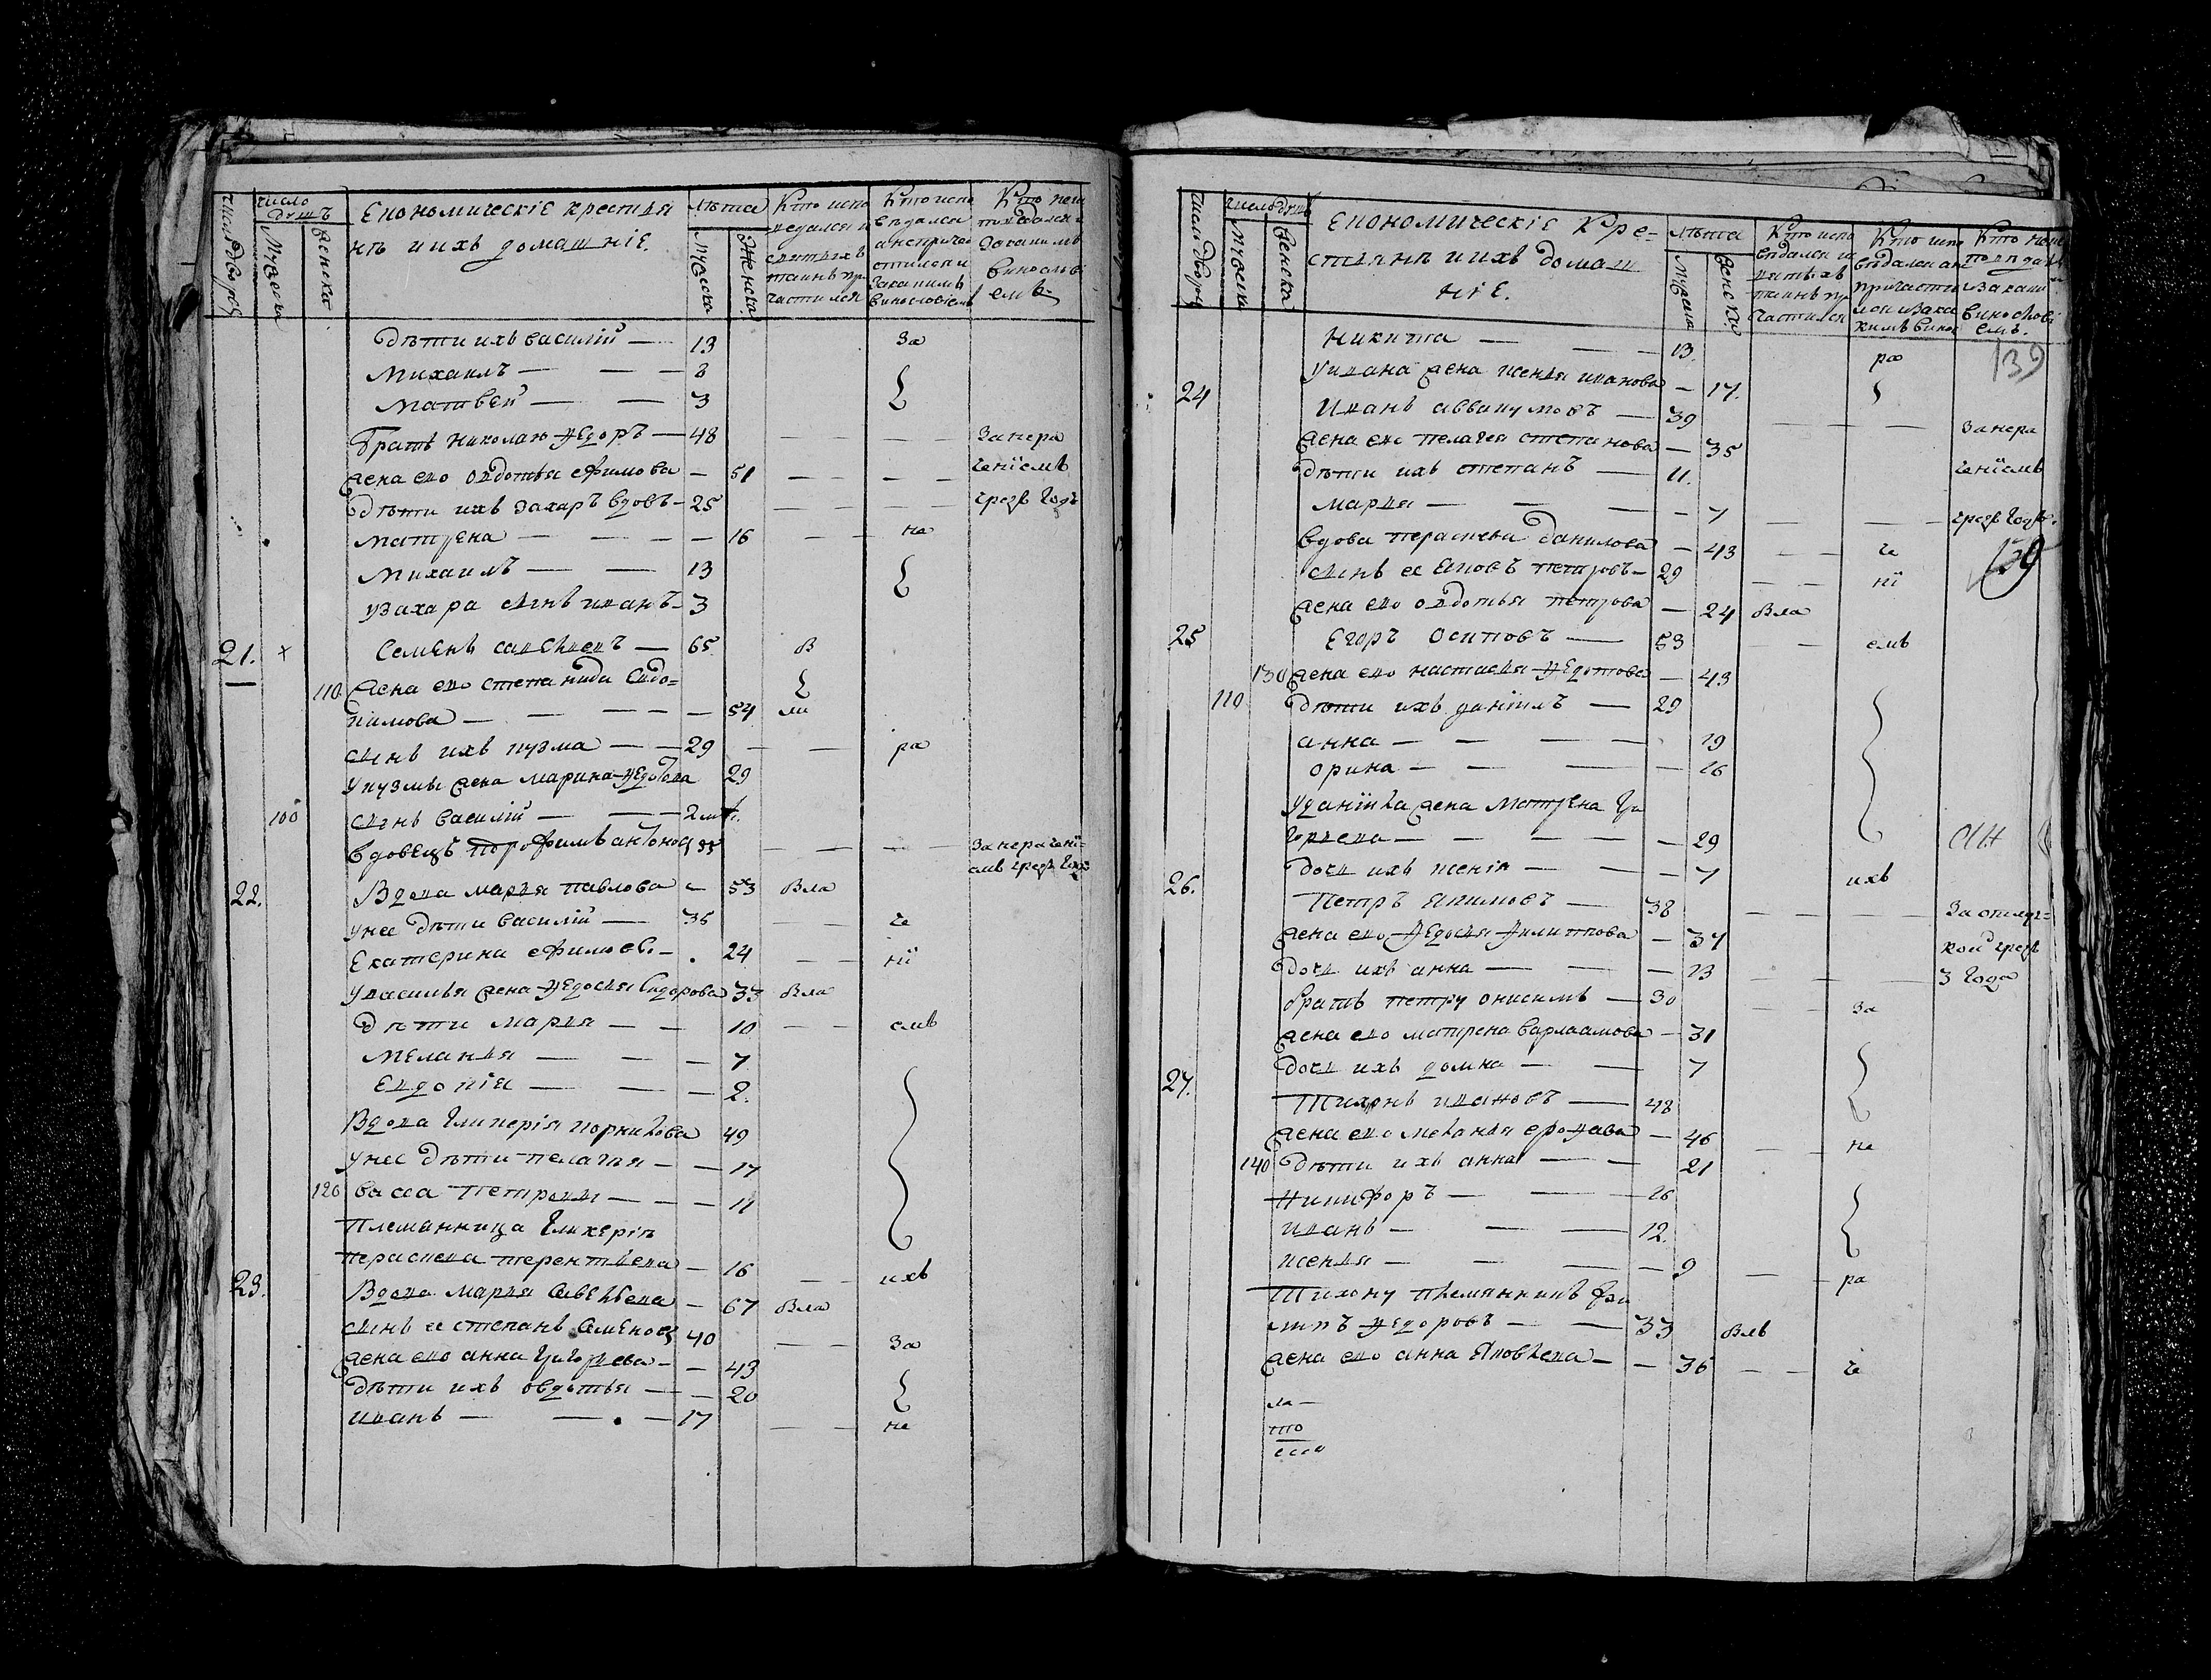 число дворовъ
число душъ
мужеска
женска
Економическіе крестья
нъ и ихъ домашніе.
лѣта
мужеска
женска
Кто испо
ведался и
святыхъ
таинъ при
частился
Кто испо
ведался
а не прича
стился и
заканимъ
винословіем
Кто неи
сповѣдался
заканимъ
винослов
емъ
дѣти ихъ василій — 13 за
михаилъ — — — 8
матвей — — 3
братъ николаю Федоръ — 48 — — — занера
жена ево овдотья ефимова — 51 — — — ченіемъ
дѣти ихъ захаръ вдовъ — 25 — — — чрезъ годъ
матрена — — — — 16 — — не
михаилъ — — 13
у захара сынъ иванъ — 3
21. Семенъ савельевъ — 65 в
110 жена ево степанида евдо=
кимова — — — — 54 ли
сынъ ихъ кузма — — 29 — — ра
у кузмы жена марина Федотова 29
100 сынъ василій — — — 2
вдовецъ порофимъ антонов 35 — — — занерачені=
емъ чрезъ годъ
22. Вдова марья павлова — 53 вла
у нее дѣти василій — 35 — че
Екатерина ефимов. — 24 — — ні
у василья жена Федосья Сидорова 33 вла
дѣти марья — — 10 — — емъ
меланья — — — 7
Евдокія — — — 2.
Вдова Гликерія корнилова 49
у нее дѣти пелагья — — 17
120 васса петровы — — — 11
племянница Гликеріи
пераскева терентьева — 16 — — ихъ
23. Вдова марья савельева — 67 вла
сынъ ее степанъ Семенов 40 — — за
жена ево анна Григорьева — — 43
дѣти ихъ овдотья — — 20
иванъ — — — 17 — — не
число дворовъ
число душъ
мужеска
женска
Економическіе Кре=
стьянъ и ихъ домаш
ніе.
лѣта
мужеска
женска
Кто испо
ведался и
святыхъ
таинъ при
частился
Кто испо
ведался а не
причасти
лся и зака
нимъ вино
Кто неис
поведал
закани
винослові
емъ.
Никита — — — 13. ра 139
у ивана жена ксенья иванова — 17.
24 Иванъ аввакумовъ — 39 — — — занера
жена ево пелагея степанова — 35 ченіемъ
дѣти ихъ степанъ — 11.
марья — — — — 7 — — — чрезъ годъ.
вдова пераскева данилова — 43 — — че 139
сынъ ее яковъ петровъ — 29 — — ні
жена ево овдотья петрова — 24 вла
25 Егоръ осиповъ — 53 — — емъ
130 жена ево настасья Федотова — 43
110 дѣти ихъ даніилъ — 29
анна — — — — 19
орина — — — — 16
у даніила жена матрена Гри
горьева — — — — — 29
дочь ихъ ксенія — — — 7 ихъ
26. Петръ якимовъ — 38 — — — за отлуч=
жена ево Федосья Филиппова — 37 кой чрезъ
дочь ихъ анна — — — 13 — — — 3 года
братъ петру онисимъ — 30 — — за
жена ево матрена варлаамова — 31
дочь ихъ домна — — 7
27. Тихонъ ивановъ — 48
жена ево меланья ерофеева — 46 — — не
140 дѣти ихъ анна — — 21
никифоръ — — — 16
иванъ — — — 12.
ксенья — — — — 9 — — ра
Тихону племянникъ Фи
липъ Федоровъ — — 33 влѣ
жена ево анна яковлева — — 36 — — че